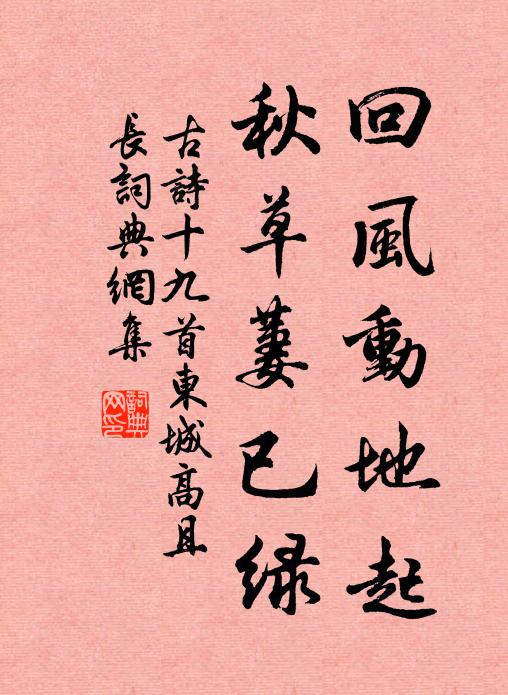 回風動地起
秋草萋已绿
古詩十九首東城高且
長詞典網集
詞典
网印